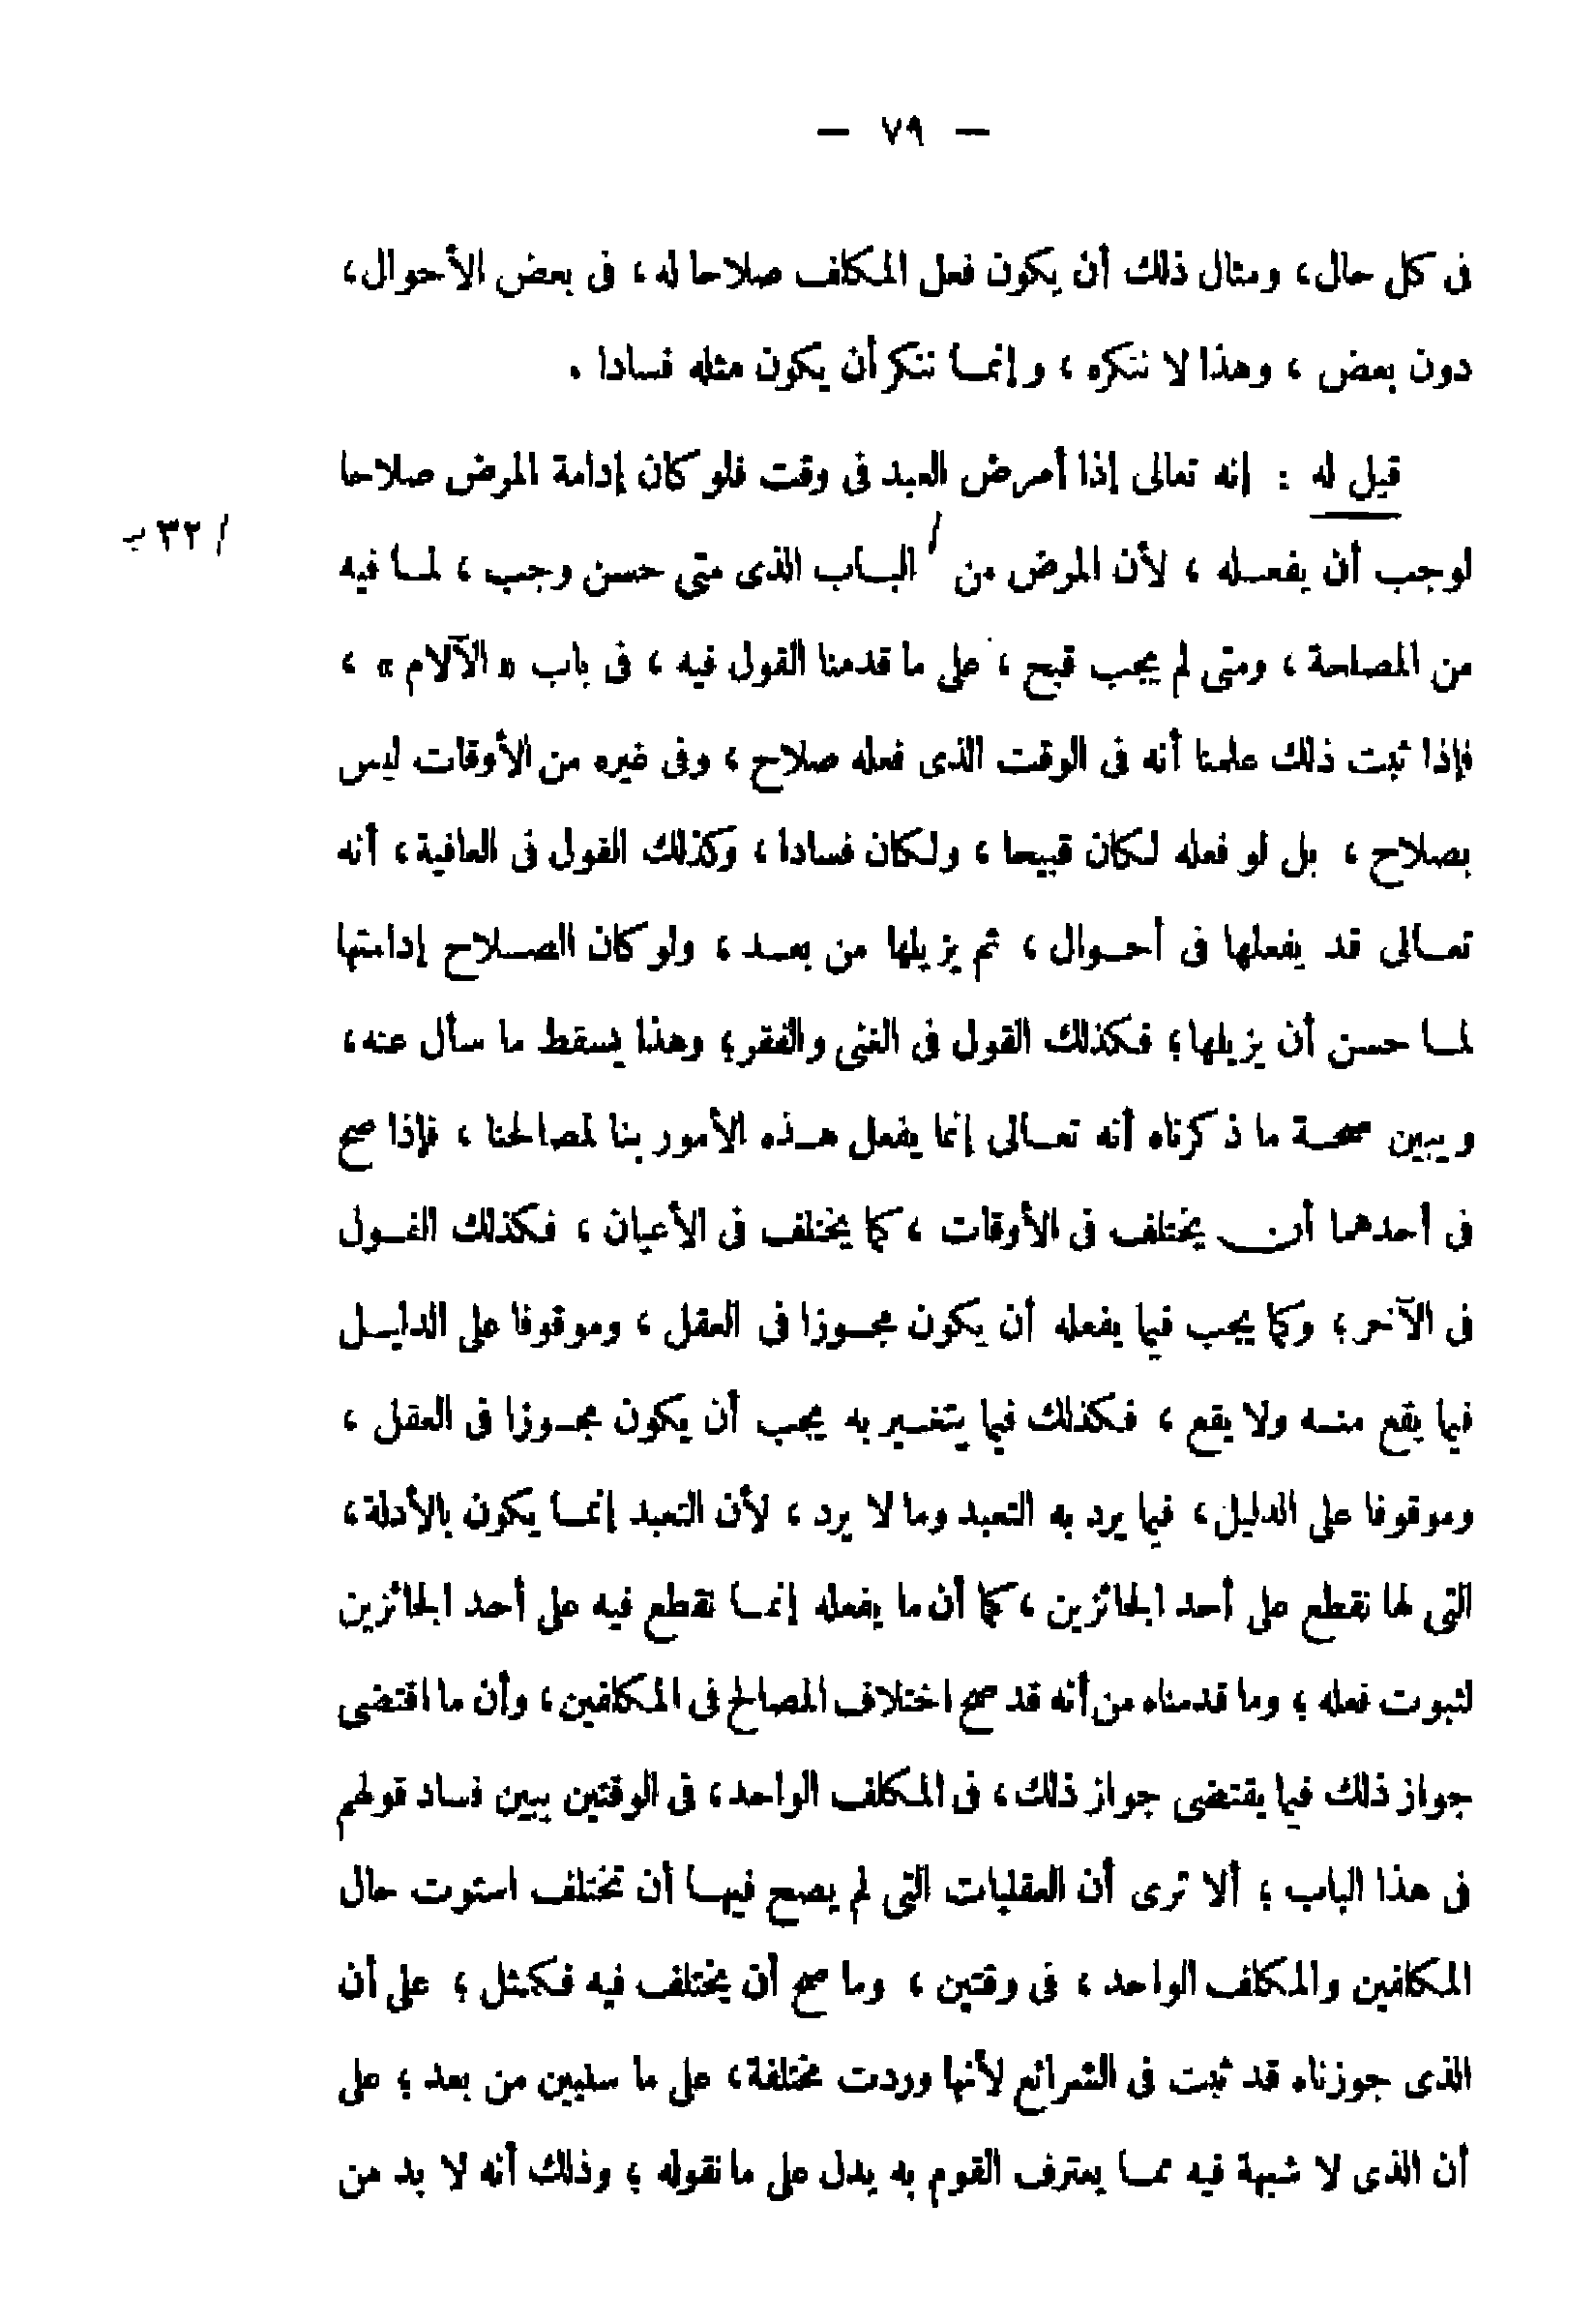 — ٧٩ —
فى كل حال، ومثال ذلك أن يكون فعل المكلف صلاحا له ، فى بعض الأحوال،
دون بعض ، وهذا لا ننكره ، وإنمـا ننكر أن يكون مثله فسادا .
قيل له : إنه تعالى إذا أمرض العبد فى وقت فلو كان إدامة المرض صلاحا
لوجب أن يفعـله ، لأن المرض من / البـاب الذى متى حسن وجب ، لمـا فيه
/ ٣٢ ب
من المصلحة ، ومتى لم يجب قبح ، على ما قدمنا القول فيه ، فى باب « الآلام » ،
فإذا ثبت ذلك علمنا أنه فى الوقت الذى فعله صلاح ، وفى غيره من الأوقات ليس
بصلاح ، بل لو فعله لكان قبيحا ، ولكان فسادا ، وكذلك القول فى العافية ، أنه
تعـالى قد يفعلها فى أحـوال ، ثم يزيلها من بعـد ، ولو كان الصـلاح إدامتها
لمـا حسن أن يزيلها ؛ فكذلك القول فى الغنى والفقر ؛ وهذا يسقط ما سأل عنه ،
ويبين صحـة ما ذكرناه أنه تعـالى إنما يفعل هـذه الأمور بنا لمصالحنا ، فإذا صح
فى أحدهما أن يختلف فى الأوقات ، كما يختلف فى الأعيان ، فكذلك القـول
فى الآخر ؛ وكما يجب فيما يفعله أن يكون مجـوزا فى العقل ، وموقوفا على الدليـل
فيما يقع منـه ولا يقع ، فكذلك فيما يتغـير به يجب أن يكون مجـوزا فى العقل ،
وموقوفا على الدليل ، فيما يرد به التعبد وما لا يرد ، لأن التعبد إنمـا يكون بالأدلة ،
التى لها نقطع على أحد الجائزين ، كما أن ما يفعله إنمـا نقطع فيه على أحد الجائزين
لثبوت فعله ؛ وما قدمناه من أنه قد صح اختلاف المصالح فى المكلفين ، وأن ما اقتضى
جواز ذلك فيما يقتضى جواز ذلك ، فى المكلف الواحد ، فى الوقتين يبين فساد قولهم
فى هذا الباب ؛ ألا ترى أن العقليات التى لم يصح فيهـا أن تختلف استوت حال
المكلفين والمكلف الواحد ، فى وقتين ، وما صح أن يختلف فيه فكمثل ؛ على أن
الذى جوزناه قد ثبت فى الشرائع لأنها وردت مختلفة ، على ما سنبين من بعد ؛ على
أن الذى لا شبهة فيه ممـا يعترف القوم به يدل على ما نقوله ؛ وذلك أنه لا بد من